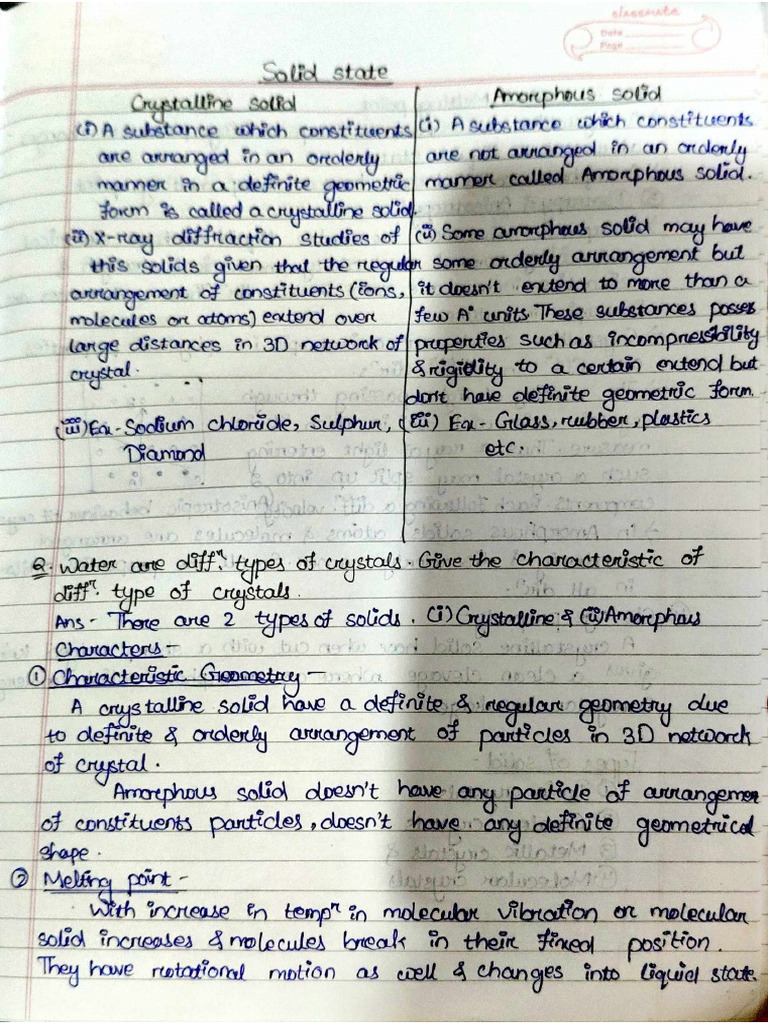 classmate
Date
Page
Solid state
Crystalline solid
(i) A substance which constituents
are arranged in an orderly
manner in a definite geometric
form is called a crystalline solid.
(ii) X-ray diffraction studies of
this solids given that the regular
arrangement of constituents (ions,
molecules or atoms) extend over
large distances in 3D network of
crystal.
(iii) Ex- Sodium chloride, Sulphur,
Diamond
Amorphous solid
(i) A substance which constituents
are not arranged in an orderly
manner called Amorphous solid.
(ii) Some amorphous solid may have
some orderly arrangement but
it doesn't extend to more than a
few A° units These substances posses
properties such as incompressibility
& rigidity to a certain extend but
dont have definite geometric form.
(iii) Ex- Glass, rubber, plastics
etc.
Q. Water are diffn. types of crystals. Give the characteristic of
diffn. type of crystals.
Ans - There are 2 types of solids. (i) Crystalline & (ii) Amorphous
Characters :-
① Characteristic Geometry -
A crystalline solid have a definite & regular geometry due
to definite & orderly arrangement of particles in 3D network
of crystal.
Amorphous solid doesn't have any particle of arrangemen
of constituents particles, doesn't have any definite geometrical
shape.
② Melting point -
With increase in tempr in molecular vibration or molecular
solid increases & molecules break in their fixed position.
They have rotational motion as well & changes into liquid state.